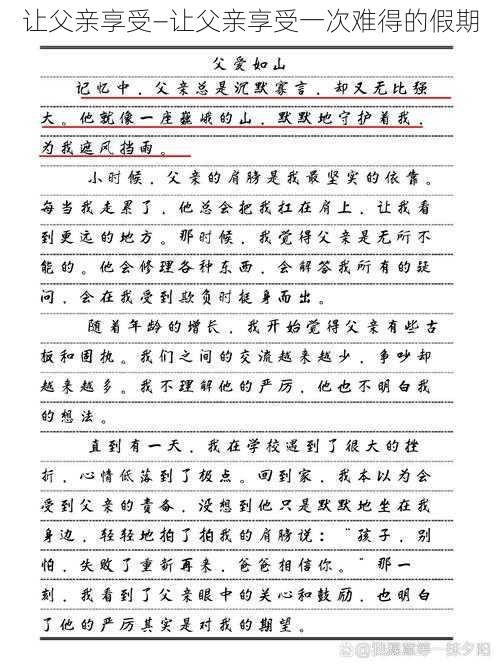 让父亲享受–让父亲享受一次难得的假期
父爱如山
记忆中，父亲总是沉默寡言，却又无比强
大。他就像一座巍峨的山，默默地守护着我，
为我遮风挡雨。
小时候，父亲的肩膀是我最坚实的依靠。
每当我走累了，他总会把我扛在肩上，让我看
到更远的地方。那时候，我觉得父亲是无所不
能的。他会修理各种东西，会解答我所有的疑
问，会在我受到欺负时挺身而出。
随着年龄的增长，我开始觉得父亲有些古
板和固执。我们之间的交流越来越少，争吵却
越来越多。我不理解他的严厉，他也不明白我
的想法。
直到有一天，我在学校遇到了很大的挫
折，心情低落到了极点。回到家，我本以为会
受到父亲的责备，没想到他只是默默地坐在我
身边，轻轻地拍了拍我的肩膀说："孩子，别
怕，失败了重新再来，爸爸相信你。"那一
刻，我看到了父亲眼中的关心和鼓励，也明白
了他的严厉其实是对我的期望。